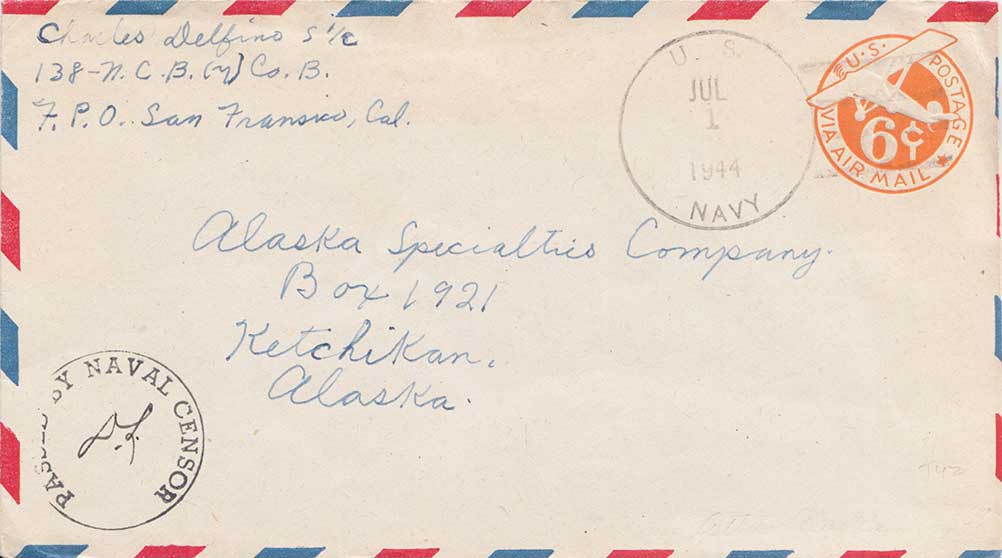 Charles Delfino S 1/c
138-N.C.B. (Y) Co. B.
F.P.O. San Fransico, Cal.
U. S.
JUL
1
1944
NAVY
U.S. POSTAGE
6¢
VIA AIR MAIL
Alaska Specialties Company.
Box 1921
Ketchikan,
Alaska.
PASSED BY NAVAL CENSOR